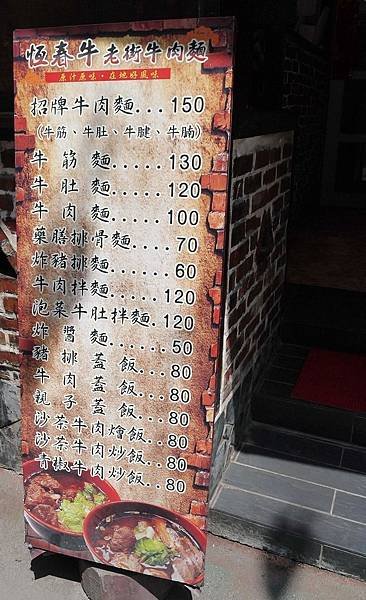 恆春牛老街牛肉麵
原汁原味·在地好風味
招牌牛肉麵...150
(牛筋、牛肚、牛腱、牛腩)
牛筋麵.....130
牛肚麵.....120
牛肉麵.....100
藥膳排骨麵....70
炸豬排麵....60
牛肉拌麵....120
泡菜牛肚拌麵.120
炸醬麵.....50
豬排蓋飯...80
牛肉蓋飯...80
親子蓋飯...80
沙茶牛肉燴飯..80
沙茶牛肉炒飯..80
青椒牛肉炒飯..80